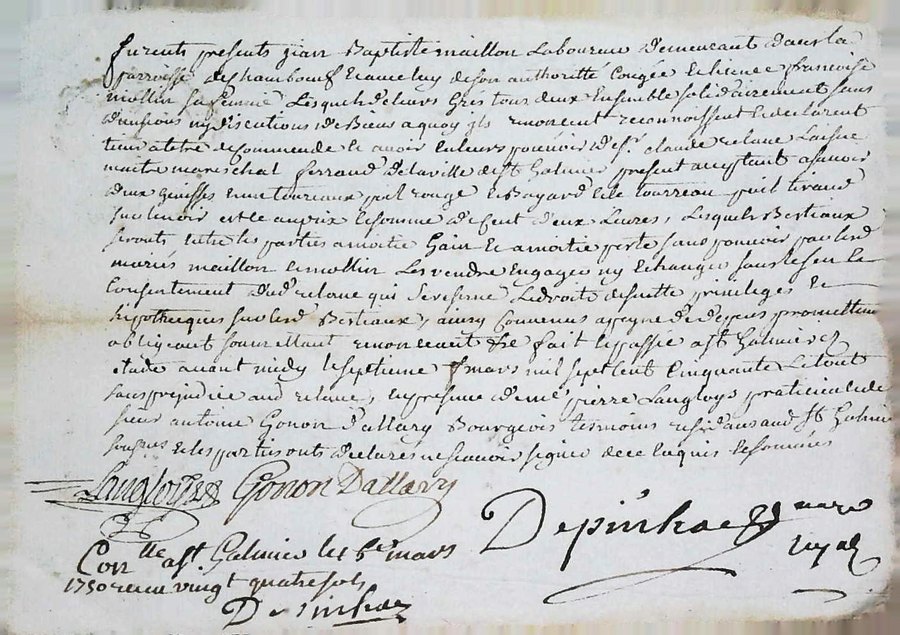 furents presents jian Baptiste maillon Laboureur demeurant dans la
parroisse de chambœuf & avec luy de son authoritté Congée & licence francoise
mollin sa femme Lesquels de leurs Grés tous deux Ensemble solidairement sans
divisions ny discutions de Biens a quoy ils renoncent reconnoissent & declarent
tenir a titre de commende & avoir en leurs pouvoir de Sr claude relane
maitre mareschal ferrand de la ville de st Galmier present acceptant a scavoir
deux Genisses & une toureaux poil rouge & Bayard & le tourreau poil tirand
sur le noir & est le au prix & somme de Cent deux Livres, Lesquels Bestiaux
seronts entre les parties a moitié Gain & a moitié perte sans pouvoir par lesd
mariés maillon & mollin Les vendre Engager ny Echanger sans le seu &
Consentement dud relane qui se reserve Le droits de suitte privileges &
hypotheques sur lesd Bestiaux, ainsy Convenus a peyne de depens promettans
obligeant soumettant renonceant &c fait & passée a st Galmier
étude avant midy le septieme mars mil sept Cent Cinquante Le tout
sans prejudice aud relane, en presence de me pierre Langloys praticien & de
sieur antoine Gonon Dallary Bourgeois temoins residans aud st Galmier
soussignés & les parties onts declarés ne scavoir signer de ce enquis & sommés
Langloys Gonon Dallary
Depinhac nore
royal
Conlle a st. Galmier le 8e mars
1750 receu vingt quatre sols
Depinhac